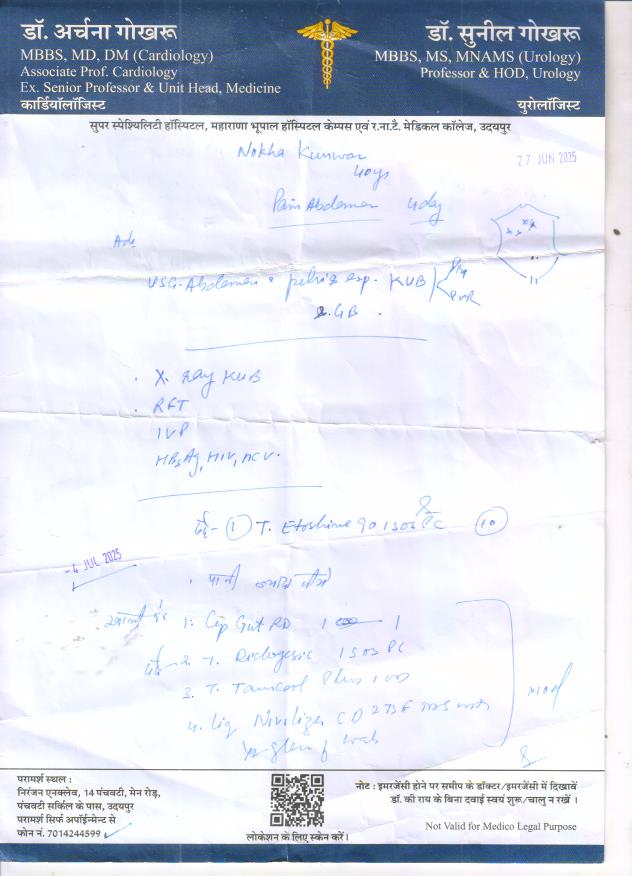 डॉ. अर्चना गोखरू
MBBS, MD, DM (Cardiology)
Associate Prof. Cardiology
Ex. Senior Professor & Unit Head, Medicine
कार्डियॉलॉजिस्ट
डॉ. सुनील गोखरू
MBBS, MS, MNAMS (Urology)
Professor & HOD, Urology
युरोलॉजिस्ट
सुपर स्पेश्यिलिटी हॉस्पिटल, महाराणा भूपाल हॉस्पिटल केम्पस एवं र.ना.टै. मेडिकल कॉलेज, उदयपुर
Nokha Kunwar
27 JUN 2025
40ys
Pain Abdomen 4day
Adv
USG-Abdomen & pelvis esp. KUB
PVR
& GB.
X. Ray KUB
RFT
IVP
HBsAg, HIV, HCV.
दर्द - 1 T. Etoshine 90 1 SOS PC 10
-4 JUL 2025
पानी ज्यादा पीये
1. Cap Gut RD 1 1
दर्द 2. T. 1 SOS PC
3. T. Plus 1 OD
4. Liq
x10d
परामर्श स्थल :
निरंजन एनक्लेव, 14 पंचवटी, मेन रोड़,
पंचवटी सर्किल के पास, उदयपुर
परामर्श सिर्फ अपॉईन्मेन्ट से
फोन नं. 7014244599
लोकेशन के लिए स्केन करें।
नोट : इमरजेंसी होने पर समीप के डॉक्टर/इमरजेंसी में दिखावें
डॉ. की राय के बिना दवाई स्वयं शुरू/चालु न रखें ।
Not Valid for Medico Legal Purpose